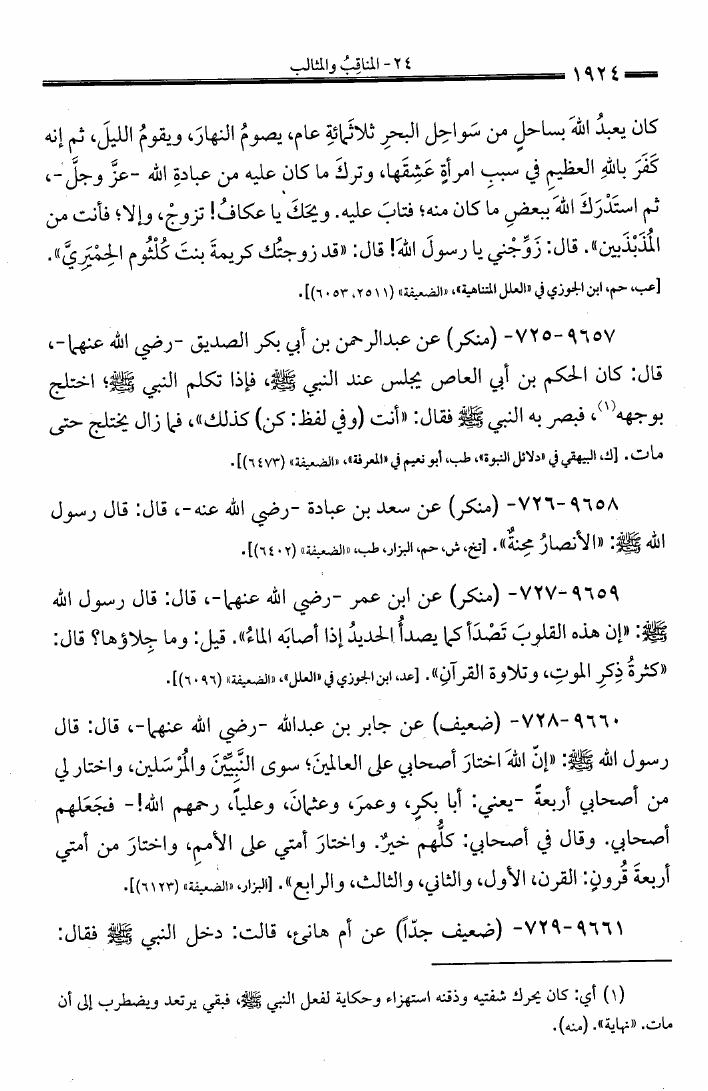 ٢٤ - المناقِبُ والمثالب
١٩٢٤
كان يعبدُ اللهَ بساحلٍ من سَواحِلِ البحرِ ثلاثَمائةِ عام، يصومُ النهارَ، ويقومُ الليلَ، ثم إنه
كَفَرَ باللهِ العظيمِ في سببِ امرأةٍ عَشِقَها، وتركَ ما كان عليه من عبادةِ الله -عزَّ وجلَّ-،
ثم استَدْرَكَ اللهُ ببعضِ ما كان منه؛ فتابَ عليه. ويحَكَ يا عكافُ! تزوجْ، وإلا؛ فأنت من
المُذَبْذَبين». قال: زَوِّجْني يا رسولَ اللهِ! قال: «قد زوجتُك كريمةَ بنتَ كُلْثُوم الحِمْيَريَّ».
[عب، حم، ابن الجوزي في «العلل المتناهية»، «الضعيفة» (٢٥١١، ٦٠٥٣)].
٩٦٥٧-٧٢٥- (منكر) عن عبدالرحمن بن أبي بكر الصديق -رضي الله عنهما-،
قال: كان الحكم بن أبي العاص يجلس عند النبي ﷺ، فإذا تكلم النبي ﷺ؛ اختلج
بوجهه(١)، فبصر به النبي ﷺ فقال: «أنت (وفي لفظ: كن) كذلك»، فما زال يختلج حتى
مات. [ك، البيهقي في «دلائل النبوة»، طب، أبو نعيم في «المعرفة»، «الضعيفة» (٦٤٧٣)].
٩٦٥٨-٧٢٦- (منكر) عن سعد بن عبادة -رضي الله عنه-، قال: قال رسول
الله ﷺ: «الأنصارُ محِنةٌ». [تخ، ش، حم، البزار، طب، «الضعيفة» (٦٤٠٢)].
٩٦٥٩-٧٢٧- (منكر) عن ابن عمر -رضي الله عنهما-، قال: قال رسول الله
ﷺ: «إن هذه القلوبَ تَصْدَأ كما يصدأُ الحديدُ إذا أصابَه الماءُ». قيل: وما جِلاؤها؟ قال:
«كثرةُ ذِكرِ الموتِ، وتلاوة القرآنِ». [عد، ابن الجوزي في «العلل»، «الضعيفة» (٦٠٩٦)].
٩٦٦٠-٧٢٨- (ضعيف) عن جابر بن عبدالله -رضي الله عنهما-، قال: قال
رسول الله ﷺ: «إنّ اللهَ اختارَ أصحابي على العالمينَ؛ سوى النَّبِيِّينَ والمُرْسَلين، واختار لي
من أصحابي أربعةً -يعني: أبا بكرٍ، وعمرَ، وعثمانَ، وعلياً، رحمهم الله!- فجَعَلهم
أصحابي. وقال في أصحابي: كلُّهم خيرٌ. واختارَ أمتي على الأممِ، واختارَ من أمتي
أربعةَ قُرونٍ: القرن، الأول، والثاني، والثالث، والرابع». [البزار، «الضعيفة» (٦١٢٣)].
٩٦٦١-٧٢٩- (ضعيف جدّاً) عن أم هانئ، قالت: دخل النبي ﷺ فقال:
(١) أي: كان يحرك شفتيه وذقنه استهزاء وحكاية لفعل النبي ﷺ، فبقي يرتعد ويضطرب إلى أن
مات. «نهاية». (منه).